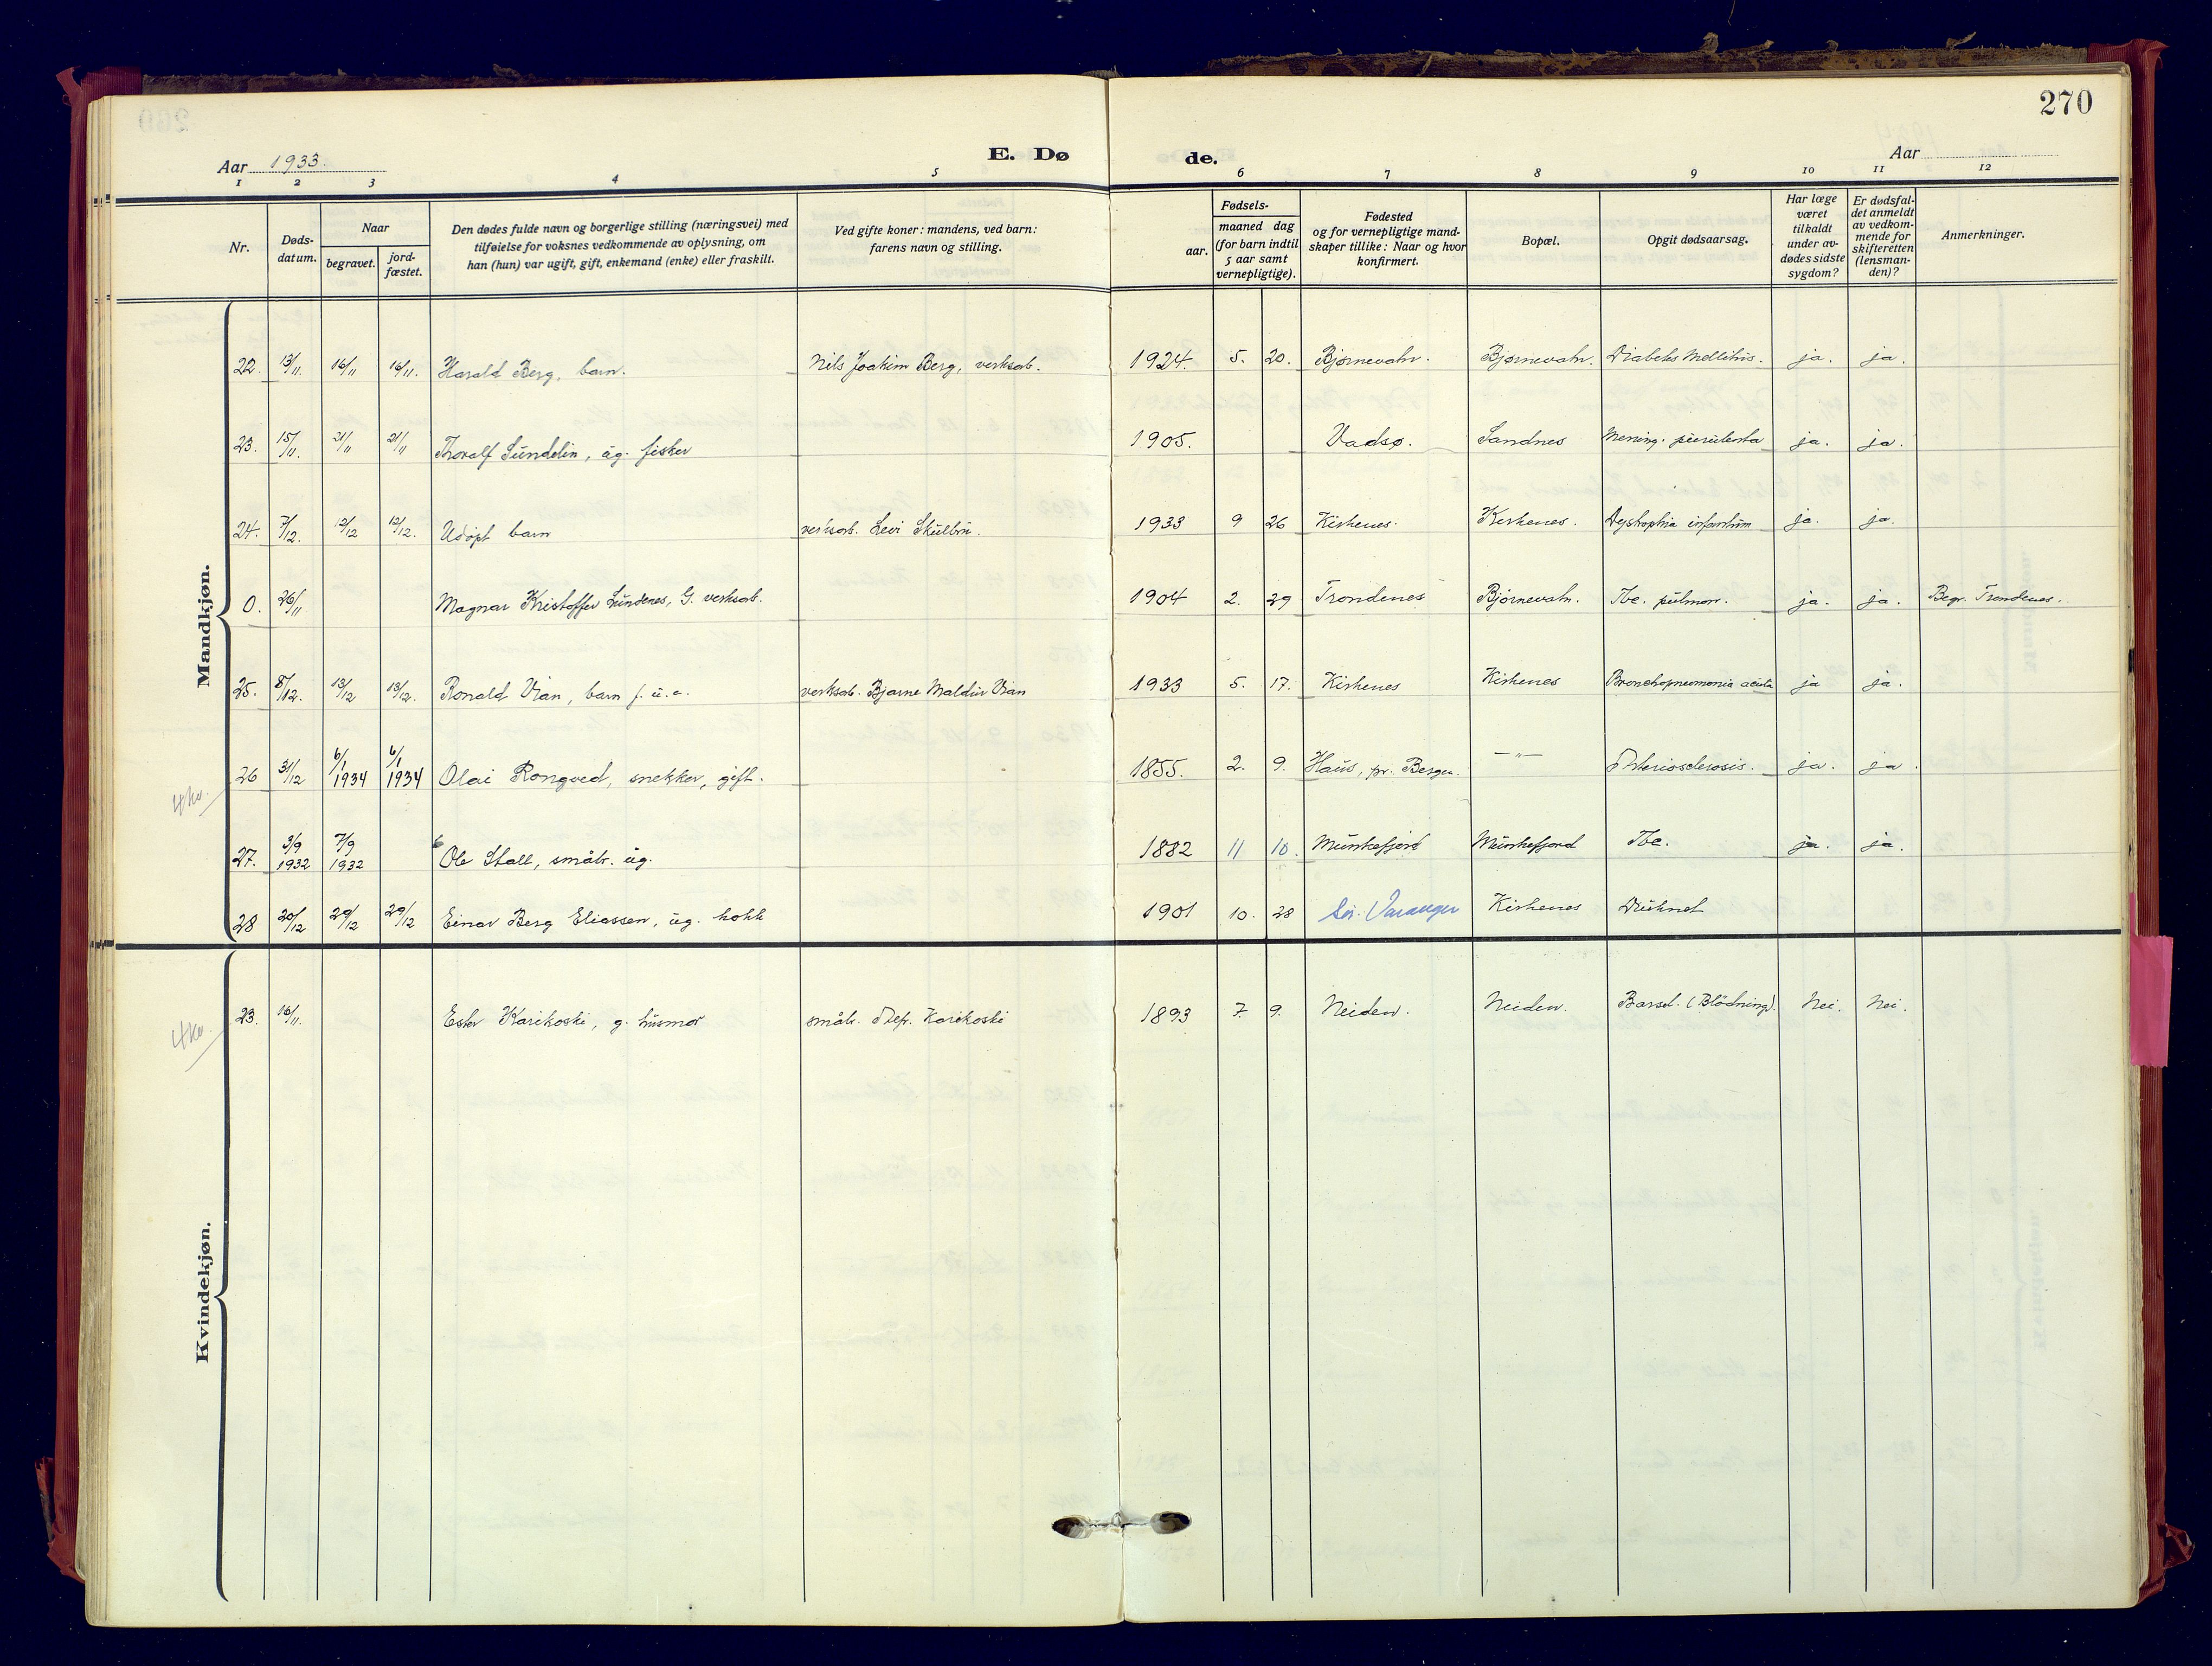 270
Aar 1933.
E. Dø
de.
Aar
1 2 3 4 5 6 7 8 9 10 11 12
Nr.
Døds-
datum.
Naar
begravet.
jord-
fæstet.
Den dødes fulde navn og borgerlige stilling (næringsvei) med
tilføielse for voksnes vedkommende av oplysning, om
han (hun) var ugift, gift, enkemand (enke) eller fraskilt.
Ved gifte koner: mandens, ved barn:
farens navn og stilling.
Fødsels-
aar.
maaned dag
(for barn indtil
5 aar samt
vernepligtige).
Fødested
og for vernepligtige mand-
skaper tillike: Naar og hvor
konfirmert.
Bopæl.
Opgit dødsaarsag.
Har læge
været
tilkaldt
under av-
dødes sidste
sygdom?
Er dødsfal-
det anmeldt
av vedkom-
mende for
skifteretten
(lensman-
den)?
Anmerkninger.
Mandkjøn.
22. 13/11. 16/11 16/11. Harald Berg, barn. Nils Joakim Berg, verksarb. 1924. 5. 20. Bjørnevatn. Bjørnevatn. Diabetes Mellitus. ja. ja.
23. 15/11. 21/11 21/11 Thoralf Sundelin, ug. fisker 1905. Vadsø. Sandnes Mening. purulenta ja. ja.
24. 7/12. 12/12 12/12. Udøpt barn verksarb. Levi Skulbru. 1933 9 26 Kirkenes. Kirkenes. Dystrophia infantum ja. ja.
0. 26/11 Magnar Kristoffer Lundenes, G. verksarb. 1904 2. 29 Trondenes Bjørnevatn. Tbc. pulmon. ja. ja. Begr. Trondenes.
25. 8/12. 13/12 13/12. Ronald Vian, barn f. u. e. verksarb. Bjarne Maldin Vian 1933 5. 17. Kirkenes Kirkenes Bronchopneumonia acuta ja ja.
26 31/12 6/1 1934 6/1 1934 Olai Rongved, snekker, gift. 1855. 2. 9. Haus, pr. Bergen. —"— Arteriosclerosis. ja. ja.
4 kv.
27. 3/9 1932 7/9 1932 Ole Stall, småbr. ug. 1882 11 10. Munkefjord Munkefjord Tbc. ja. ja.
28 20/12 29/12 29/12 Einar Berg Eliassen, ug. kokk 1901 10. 28 Sør-Varanger Kirkenes Druknet
Kvindekjøn.
23. 16/11. Ester Karikoski, g. husmor småbr. Karikoski 1893 7. 9. Neiden. Neiden. Barsel. (Blödning). Nei. Nei.
4 kv.